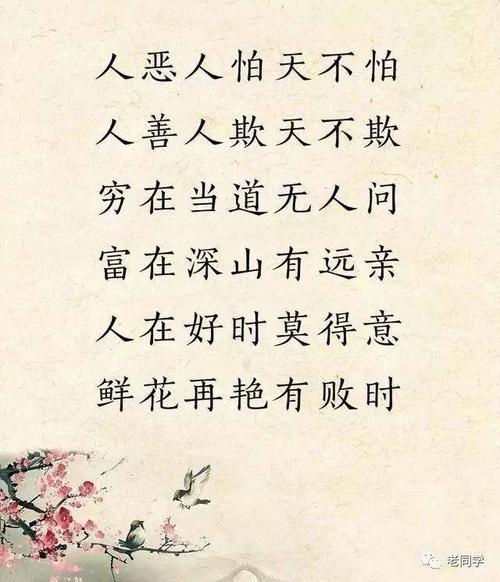 人恶人怕天不怕
人善人欺天不欺
穷在当道无人问
富在深山有远亲
人在好时莫得意
鲜花再艳有败时
老同学